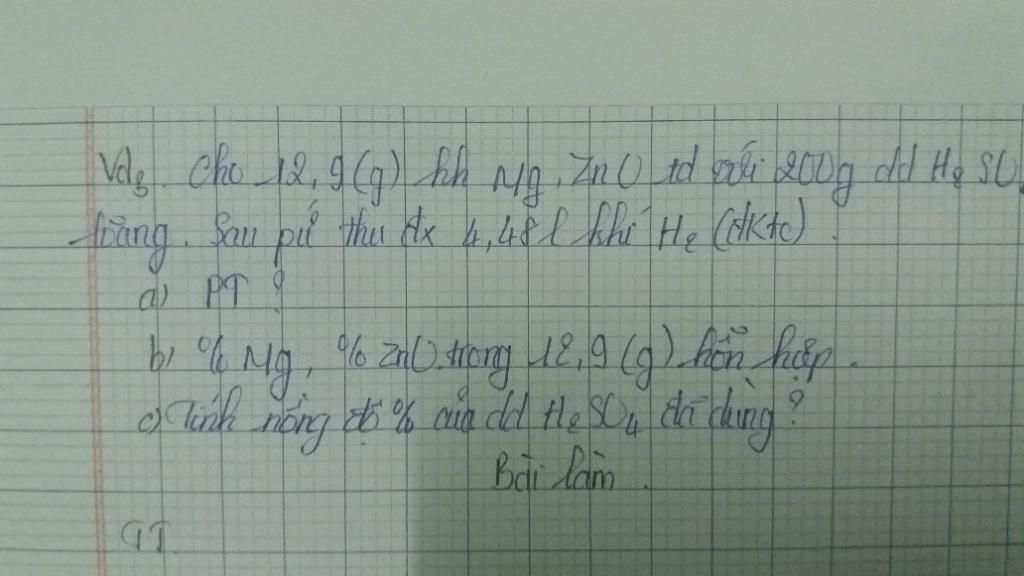 Vd3. Cho 12,9(g) hh Mg, ZnO td với 200g dd H2SO4
loãng. Sau pứ thu đx 4,48l khí H2 (đktc).
a) PT ?
b) % Mg, % ZnO trong 12,9(g) hỗn hợp.
c) Tính nồng độ % của dd H2SO4 đã dùng?
Bài làm.
GT